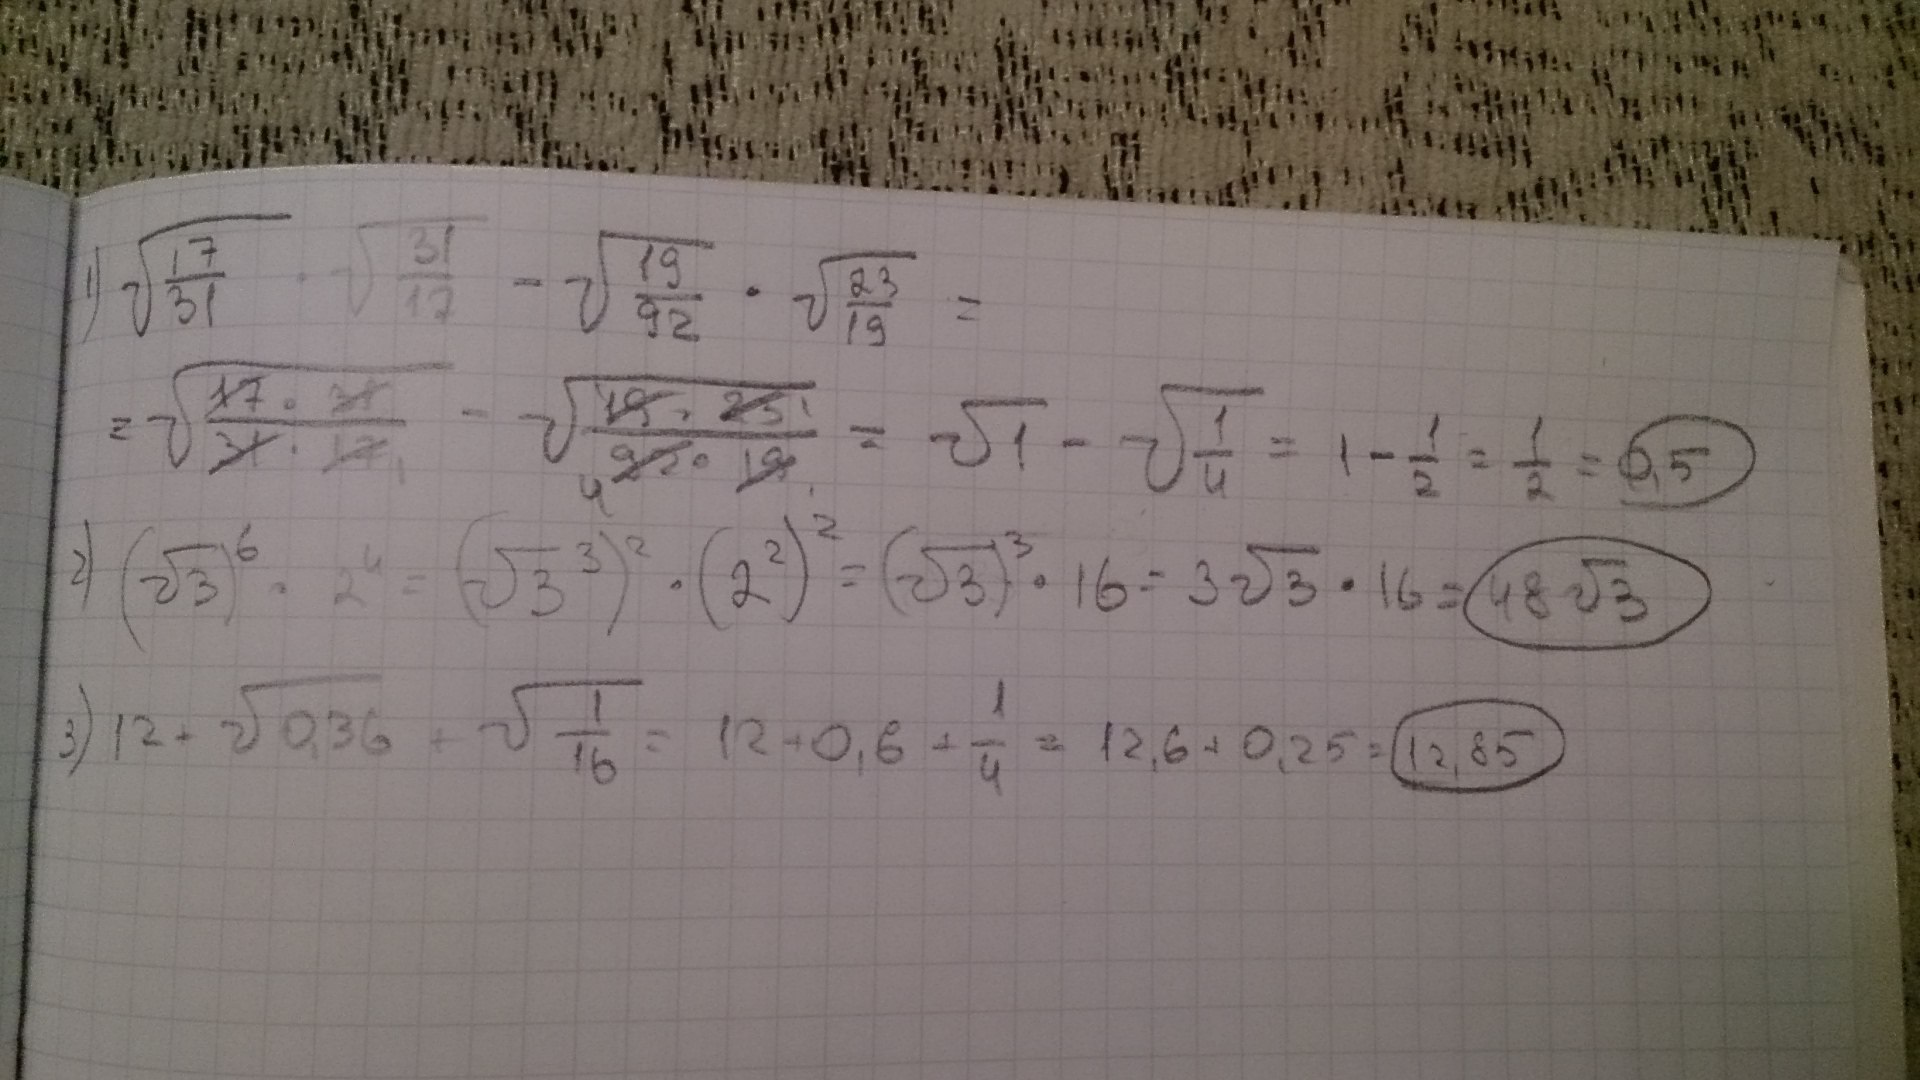 1) √(17/31) · √(31/17) - √(19/92) · √(23/19) =
= √((17 · 31)/(31 · 17)) - √((19 · 23)/(92 · 19)) = √1 - √(1/4) = 1 - 1/2 = 1/2 = 0,5
2) (√3)⁶ · 2⁴ = (√3³)² · (2²)² = (√3)³ · 16 = 3√3 · 16 = 48√3
3) 12 + √0,36 + √(1/16) = 12 + 0,6 + 1/4 = 12,6 + 0,25 = 12,85